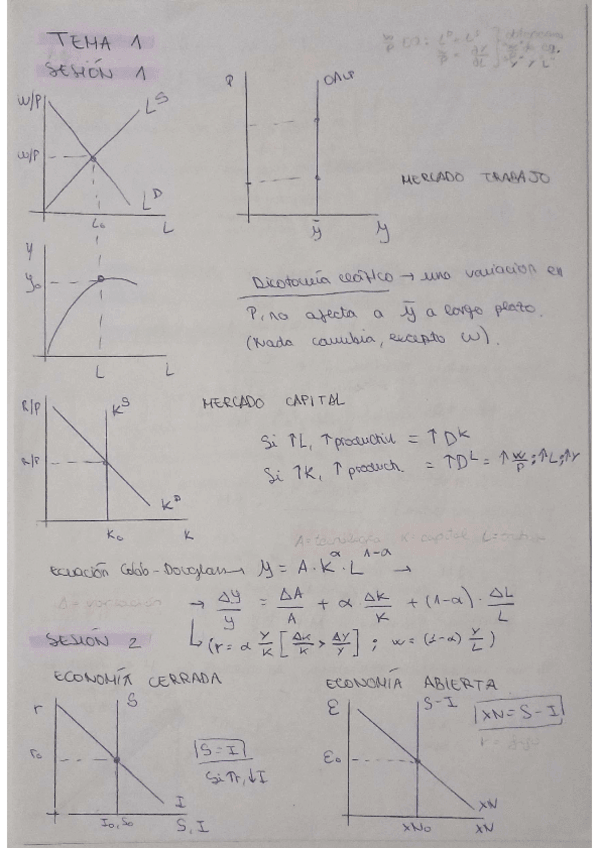 TEMA 1
SESIÓN 1
W/P
L^S
W/P
L^D
L₀
L
P
OALP
ȳ
y
MERCADO TRABAJO
y
y₀
L
L
Dicotomía clásica → una variación en
P, no afecta a ȳ a largo plazo.
(Nada cambia, excepto W).
R/P
K^S
R/P
K^D
K₀
K
MERCADO CAPITAL
Si ↑L, ↑ productiv = ↑D^K
Si ↑K, ↑ product. = ↑D^L = ↑ W/P ; ↑L ; ↑Y
A = tecnología K = capital L =
Ecuación Cobb-Douglas → y = A · K^α · L^1-α →
Δ = variación
→ Δy/y = ΔA/A + α ΔK/K + (1-α) · ΔL/L
↳ (r = α Y/K [ΔK/K > ΔY/Y] ; w = (1-α) Y/L)
SESIÓN 2
ECONOMÍA CERRADA
r
S
r₀
I
I₀, S₀
S, I
S = I
Si ↑r, ↓I
ECONOMÍA ABIERTA
ε
S-I
ε₀
XN
XN₀
XN
XN = S - I